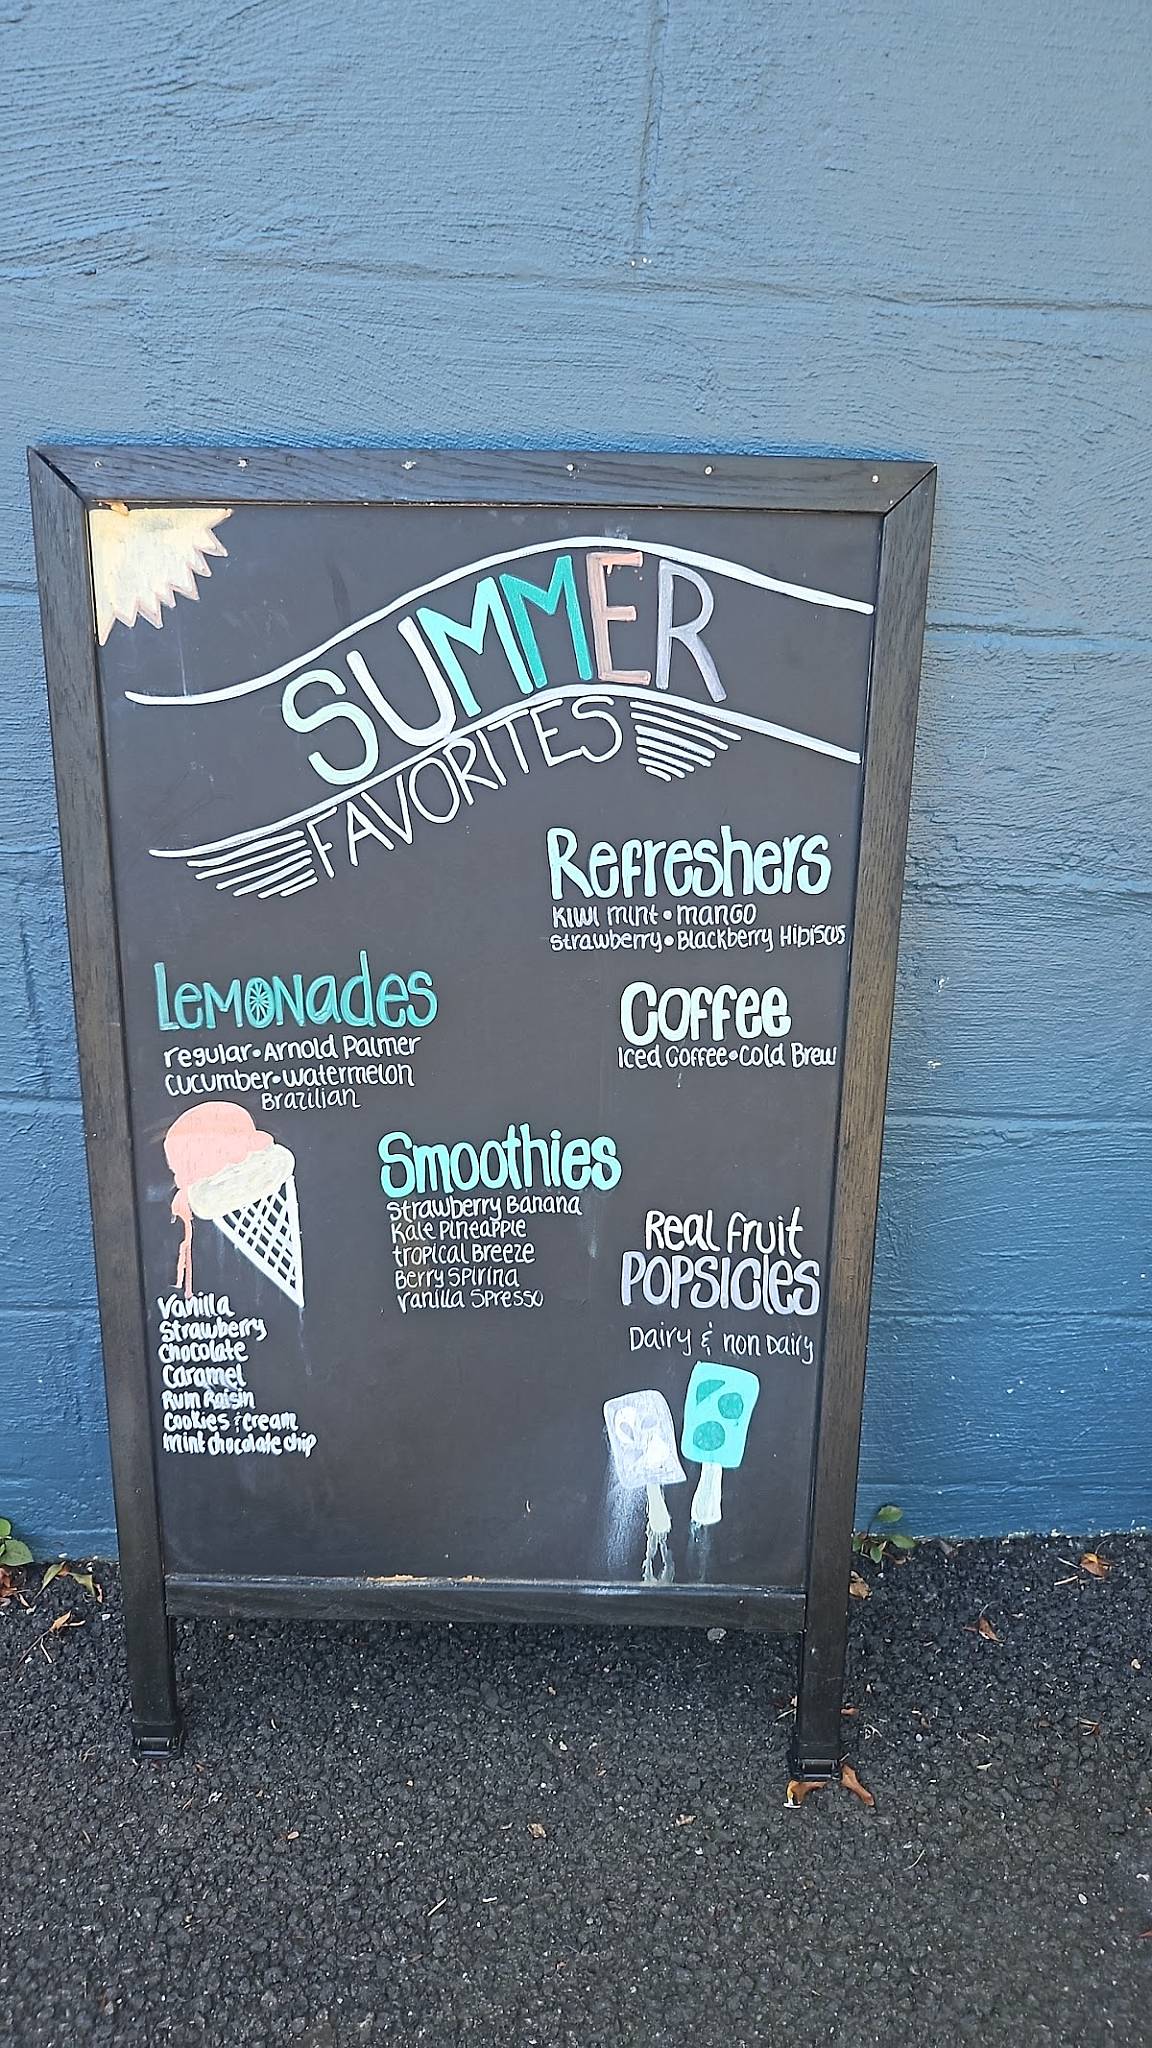 SUMMER
FAVORITES
Refreshers
Kiwi mint • mango
Strawberry • Blackberry Hibiscus
LEMONades
regular • Arnold Palmer
cucumber • watermelon
Brazilian
Coffee
Iced Coffee • Cold Brew
Smoothies
Strawberry Banana
Kale Pineapple
tropical Breeze
Berry Spirina
vanilla Spresso
Real fruit
POPSICles
Dairy & non Dairy
Vanilla
Strawberry
Chocolate
Caramel
Rum Raisin
Cookies & Cream
Mint chocolate chip